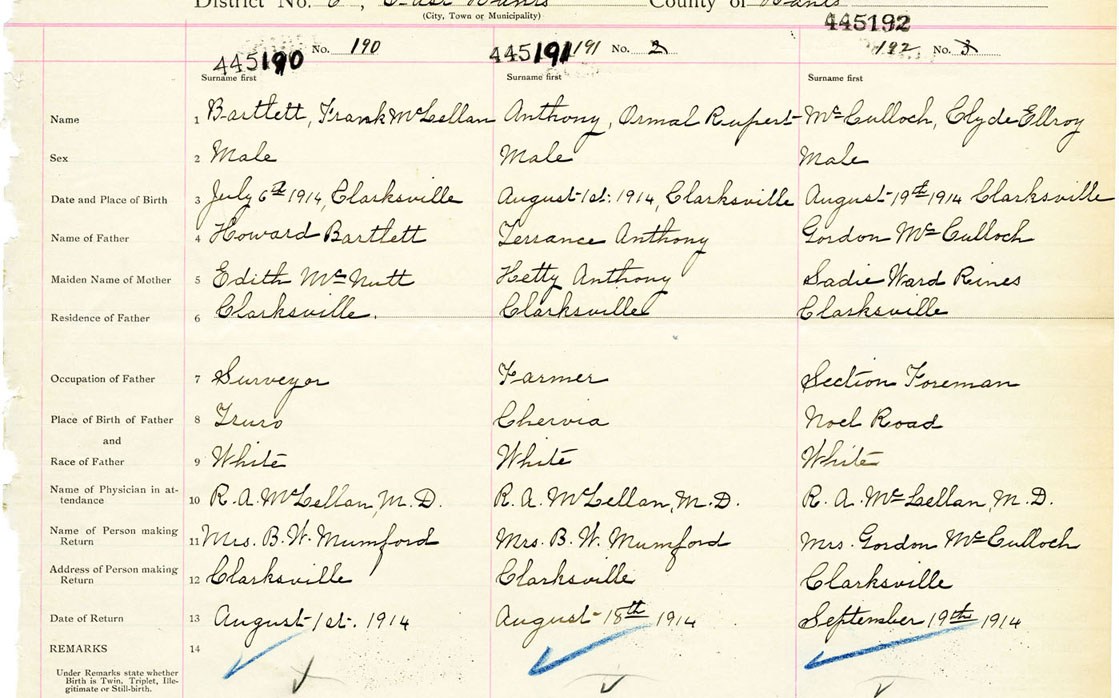 District No. 6, East Hants County of Hants
(City, Town or Municipality)
445192
No. 190 191 No. 2 192 No. 3
445190 445191
Surname first Surname first Surname first
Name 1 Bartlett, Frank McLellan Anthony, Ormal Rupert McCulloch, Clyde Ellroy
Sex 2 Male Male Male
Date and Place of Birth 3 July 6th 1914, Clarksville August 1st. 1914, Clarksville August 19th 1914 Clarksville
Name of Father 4 Howard Bartlett Terrance Anthony Gordon McCulloch
Maiden Name of Mother 5 Edith McNutt Hetty Anthony Sadie Ward Reines
Residence of Father 6 Clarksville. Clarksville Clarksville
Occupation of Father 7 Surveyor Farmer Section Foreman
Place of Birth of Father 8 Truro Chervia Noel Road
and
Race of Father 9 White White White
Name of Physician in at-
tendance 10 R. A. McLellan, M. D. R. A. McLellan, M. D. R. A. McLellan, M. D.
Name of Person making
Return 11 Mrs. B. W. Mumford Mrs. B. W. Mumford Mrs. Gordon McCulloch
Address of Person making
Return 12 Clarksville Clarksville Clarksville
Date of Return 13 August 1st. 1914 August 18th 1914 September 19th 1914
REMARKS 14
Under Remarks state whether
Birth is Twin, Triplet, Ille-
gitimate or Still-birth.